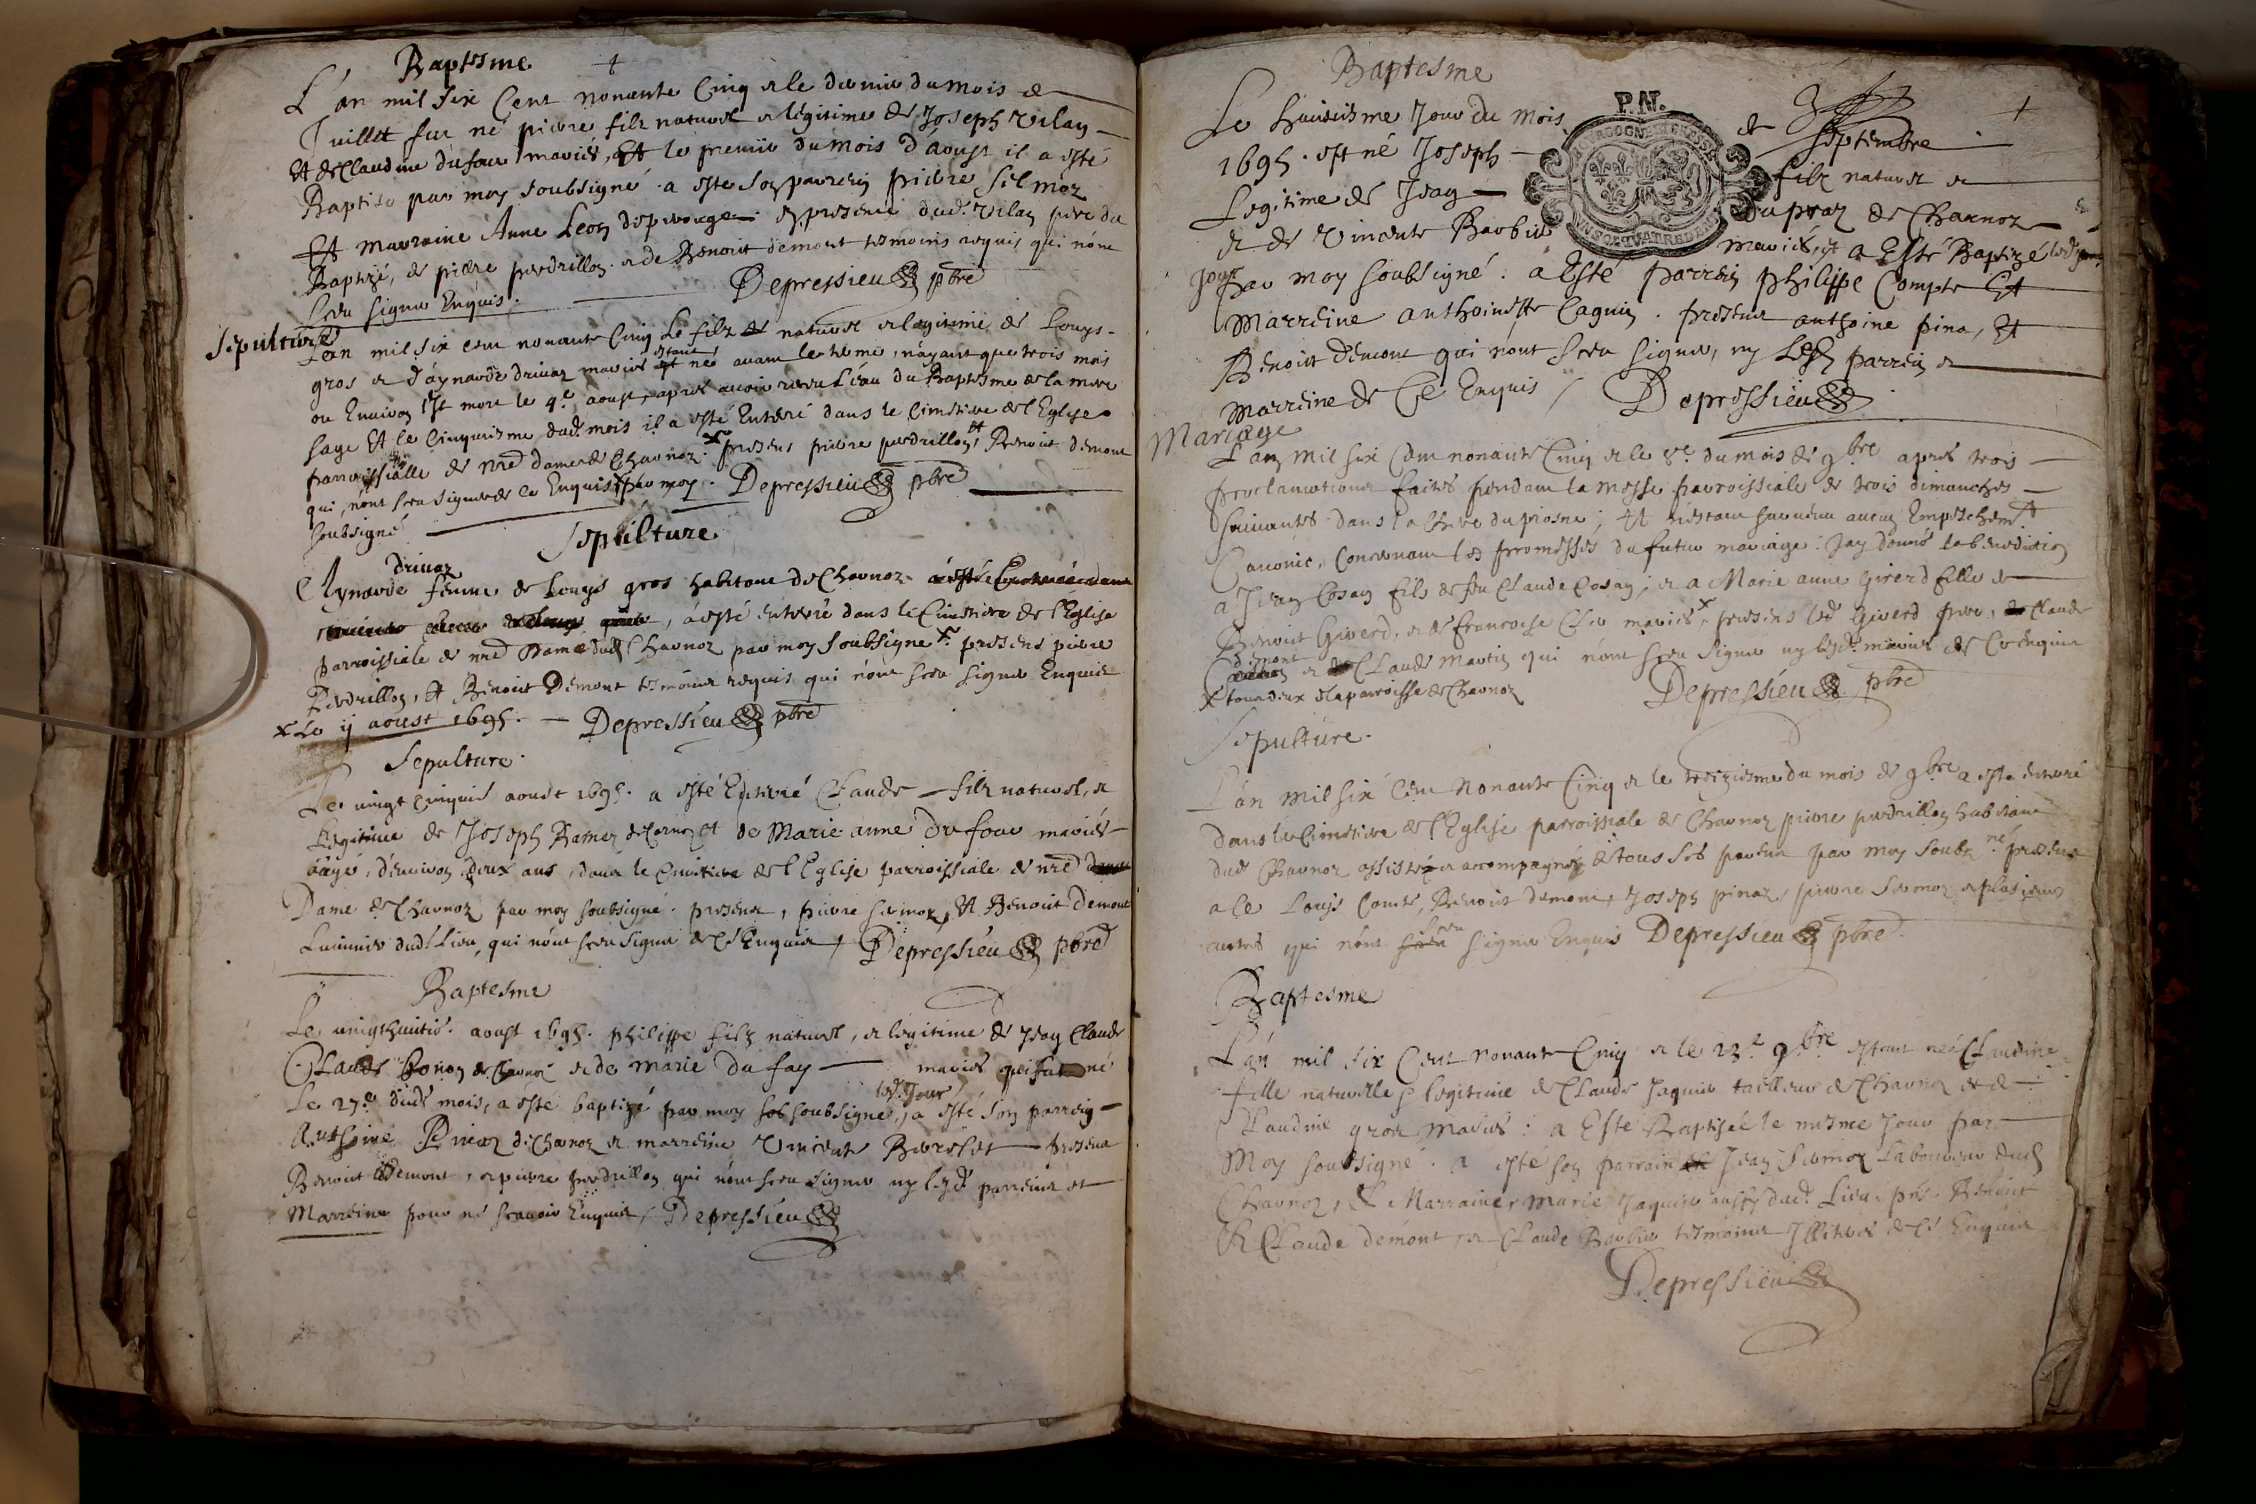 Baptesme
L'an mil six Cent nonante Cinq et le dernier du mois de
Juillet fut né pierre filz naturel et légitime de Joseph Vilan
Et de Claudine dufour mariés, Et le premier du mois d'aoust il a esté
Baptisé par moy soubsigné a esté son parrein pierre
Et marraine Anne en presence dud. Vilan pere du
Baptizé, de pierre perdrillon et de Benoit demont temoins requis qui nont
sceu signer Enquis. Depressieu pbre
Sepulture
L'an mil six cent nonante Cinq Le filz naturel et legitime de Louys
gros et d'aynarde drivaz mariés estant né avant le terme, n'ayant que trois mois
ou Environ Est mort le 4e aoust, apres avoir receu L'eau du Baptesme de la mere
sage Et le Cinquiesme dud. mois il a esté Enterré dans le Cimetiere de l'Eglise
parroissialle de nre dame de Charnoz. presens pierre perdrillon, et Benoit demont
qui n'ont sceu signer de ce Enquis par moy. Depressieu pbre
soubsigné
Sepulture
drivaz
Aynarde femme de Louys gros habitant de Charnoz
a esté enterré dans le Cimetiere de l'Eglise
parroissiale de nre Dame dud Charnoz par moy soubsigné x presens pierre
Perdrillon, et Benoit Demont temoins requis qui n'ont sceu signer Enquis
x Le ij aoust 1695. Depressieu pbre
Sepulture.
Le vingt cinquie aoust 1695. a esté Enterré Claude filz naturel, et
Legitime de Joseph Ramez et de Marie anne Dufour mariés
aagé, d'environ deux ans, dans le Cimetiere de l'Eglise parroissiale de nre
Dame de Charnoz par moy soubsigné. presens, pierre Et Benoit Demont
dud. Lieu, qui n'ont sceu signer de ce Enquis, Depressieu pbre
Baptesme
Le vingthuitie. aoust 1695. philippe filz naturel, et légitime de Jean Claude
Claude de Charnoz et de marie Du fay mariés qui fut né
Le 27e dud. mois, a esté baptizé par moy soubsigné, led. Jour a esté son parrein
Anthoine Drivaz de Charnoz et marreine Vincente presens
Benoit Demont, et pierre perdrillon qui n'ont sceu signer ny lesd. parrein et
Marreine pour ne scavoir Enquis, Depressieu
Baptesme
Le huitiesme Jour du mois de Septembre
P.N.
1695. est né Joseph filz naturel et
Legitime de Jean dupraz de Charnoz
et de Vincente Barbier mariés, et a Esté Baptizé led. jour
par moy soubsigné. a Esté parrein philippe Compte Et
Marreine anthoinette Caguin. presens anthoine pina, Et
Benoit Demont qui n'ont sceu signer, ny Lesd. parrein et
Marreine de Ce Enquis / Depressieu
Mariage
L'an mil six Cent nonante Cinq et le 8e du mois de 9bre apres trois
proclamations faites pendant la messe parroissiale de trois dimanches
suivantes dans la Cure du piosne; et n'estant survenu aucun Empeschemt
Canonic, Concernant les promesses du futur mariage: Jay donné la benediction
a Jean Cosan fils de feu Claude Cosan; et a Marie anne Girerd fille de
Benoit Girerd, et de francoise mariés x presens led. Girerd pere, Claude
demont et Claude Martin qui n'ont sceu signer ny lesd. mariés de Ce enquis
x tous deux de la parroisse de Charnoz Depressieu pbre
Sepulture.
L'an mil six Cent Nonante Cinq et le treiziesme du mois de 9bre a esté enterré
dans le Cimetiere de l'Eglise parroissiale de Charnoz pierre perdrillon habitant
dud Charnoz assisté et accompagné de tous ses parens par moy soubs né presens
a ce Louys Comte, Benoit demont, Joseph pinaz, pierre et plusieurs
autres qui n'ont sceu signer Enquis Depressieu pbre
Baptesme
L'an mil six Cent Nonante Cinq et le 23e 9bre estant née Claudine
fille naturelle et legitime de Claude Jaquier tailleur de Charnoz et de
Claudine gros mariés: a Esté Baptisée le mesme Jour par
Moy soubsigné. a esté son parrain Jean Laboureur dud
Charnoz, Et Marraine, Marie Jaquier aussy dud. Lieu. pns. Benoit
et Claude demont, et Claude Barbier tesmoins Illiterés de Ce Enquis
Depressieu